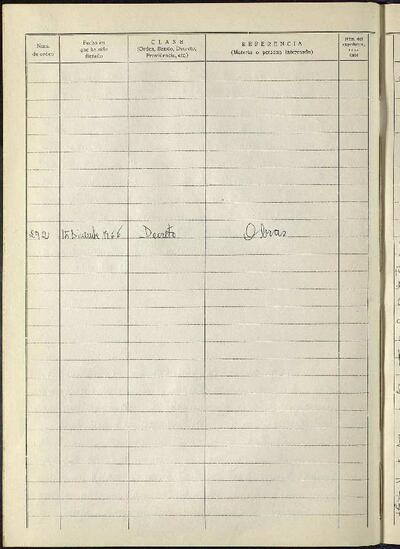 Núm. de orden
Fecha en que ha sido dictado
CLASE
(Orden, Bando, Decreto, Providencia, etc.)
REFERENCIA
(Materia o persona interesada)
Núm. del expediente,
292 15 Diciembre 1966 Decreto Obras